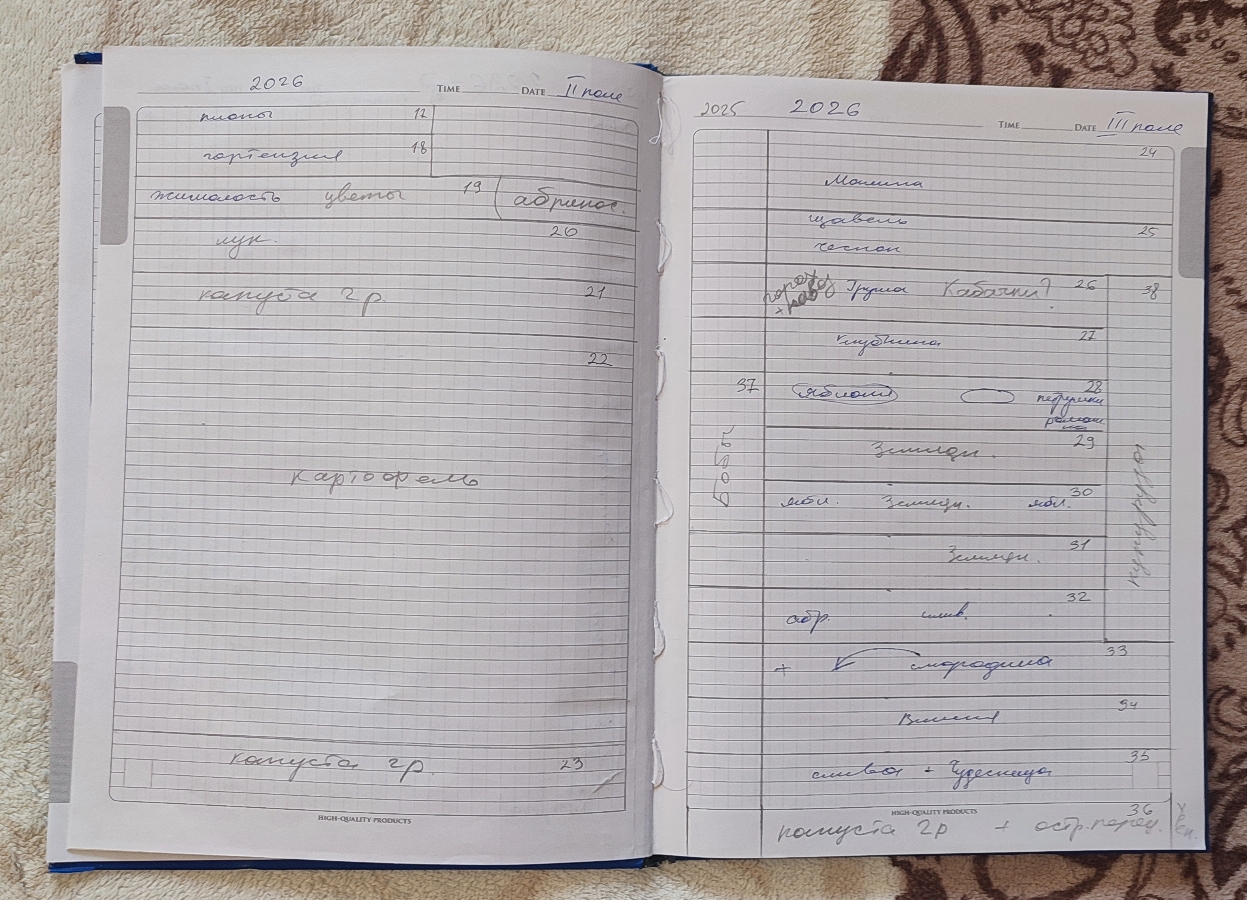 2026 TIME DATE II поле
пионы 17
гортензия 18
жимолость цветы 19 абрикос.
лук. 20
капуста 2 гр. 21
22
картофель
капуста 2 гр. 23
HIGH-QUALITY PRODUCTS
2025 2026 TIME DATE III поле
24
Малина
щавель 25
чеснок
горох
Груша Кабачки? 26 38
клубника 27
37 яблоня 28
петрушка
Земкл. 29
30
ябл. ябл.
Бобы
кукуруза
31
32
абр. слив.
33
+ смородина
34
Вишня
35
слива + Чудесница
36
HIGH-QUALITY PRODUCTS
капуста 2р + остр. перец.